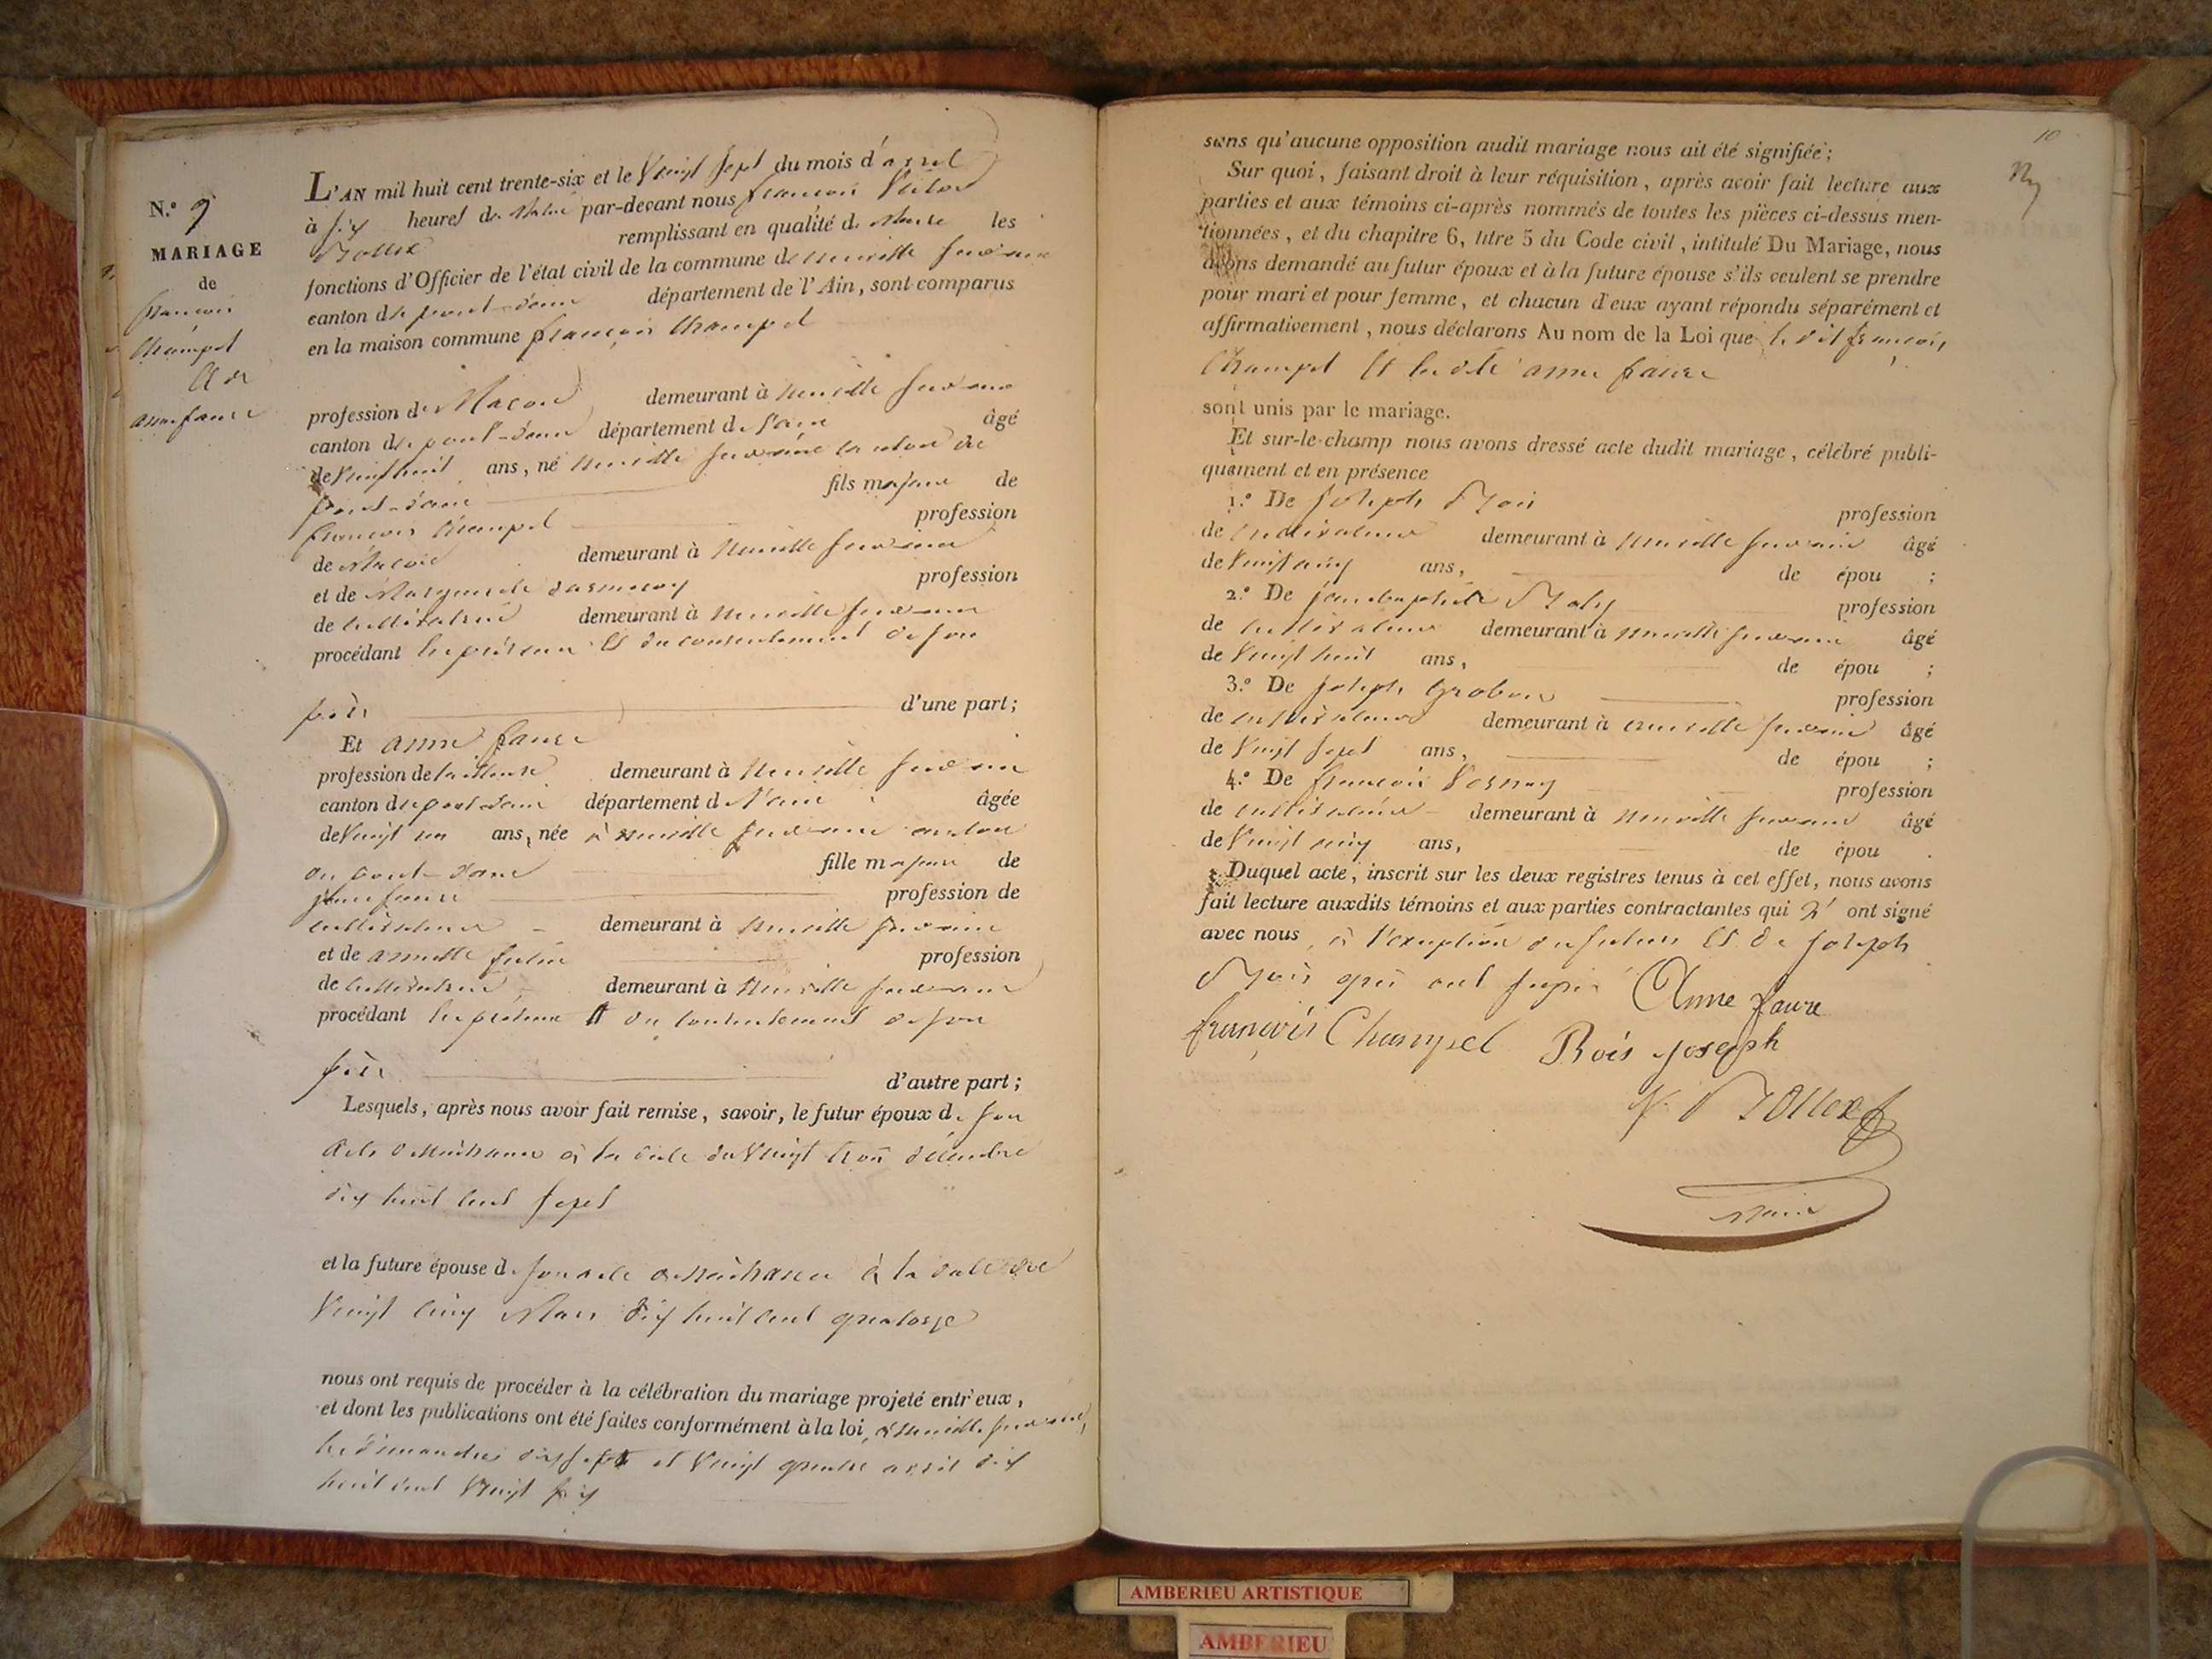 N.° 9
MARIAGE
de
françois
Champel
Et de
anne faure
L'AN mil huit cent trente-six et le Vingt Sept du mois d'avril
à six heures du Matin par-devant nous françois Victor
remplissant en qualité de Maire les
fonctions d'Officier de l'état civil de la commune de neuville sur ain
canton de pont-d'ain département de l'Ain, sont comparus
en la maison commune françois Champel
profession de Maçon demeurant à neuville sur ain
canton de pont-d'ain département de l'ain âgé
de Vingt huit ans, né neuville sur ain canton de
pont-d'ain fils majeur de
françois Champel profession
de Maçon demeurant à Neuville sur ain
et de Marguerite profession
de cultivatrice demeurant à neuville sur ain
procédant les présents Et du consentement de son
père d'une part;
Et anne faure
profession de tailleuse demeurant à Neuville sur ain
canton de pont-d'ain département de l'ain âgée
de Vingt un ans, née à neuville sur ain canton
du pont-d'ain fille majeure de
faure profession de
cultivateur demeurant à neuville sur ain
et de annette profession
de cultivatrice demeurant à Neuville sur ain
procédant Et du consentement de son
père d'autre part;
Lesquels, après nous avoir fait remise, savoir, le futur époux de son
acte de Naissance à la date du Vingt trois décembre
dix huit cent sept
et la future épouse de son acte de Naissance à la date du
Vingt cinq Mars dix huit cent quatorze
nous ont requis de procéder à la célébration du mariage projeté entr'eux,
et dont les publications ont été faites conformément à la loi, à neuville sur ain,
les dimanches dix sept et Vingt quatre avril dix
huit cent Vingt six
10
sans qu'aucune opposition audit mariage nous ait été signifiée;
Sur quoi, faisant droit à leur réquisition, après avoir fait lecture aux
parties et aux témoins ci-après nommés de toutes les pièces ci-dessus men-
tionnées, et du chapitre 6, titre 5 du Code civil, intitulé Du Mariage, nous
avons demandé au futur époux et à la future épouse s'ils veulent se prendre
pour mari et pour femme, et chacun d'eux ayant répondu séparément et
affirmativement, nous déclarons Au nom de la Loi que le dit françois
Champel Et la dite anne faure
sont unis par le mariage.
Et sur-le-champ nous avons dressé acte dudit mariage, célébré publi-
quement et en présence
1.° De Joseph Rois profession
de cultivateur demeurant à Neuville sur ain âgé
de Vingt cinq ans, de épou ;
2.° De Jean baptiste profession
de cultivateur demeurant à neuville sur ain âgé
de Vingt huit ans, de épou ;
3.° De Joseph profession
de cultivateur demeurant à neuville sur ain âgé
de Vingt sept ans, de épou ;
4.° De françois profession
de cultivateur demeurant à neuville sur ain âgé
de Vingt cinq ans, de épou .
Duquel acte, inscrit sur les deux registres tenus à cet effet, nous avons
fait lecture auxdits témoins et aux parties contractantes qui n' ont signé
avec nous, à l'exception des futurs Et de Joseph
Rois qui ont signé Anne faure
françois Champel Rois joseph
Maire
AMBERIEU ARTISTIQUE
AMBERIEU